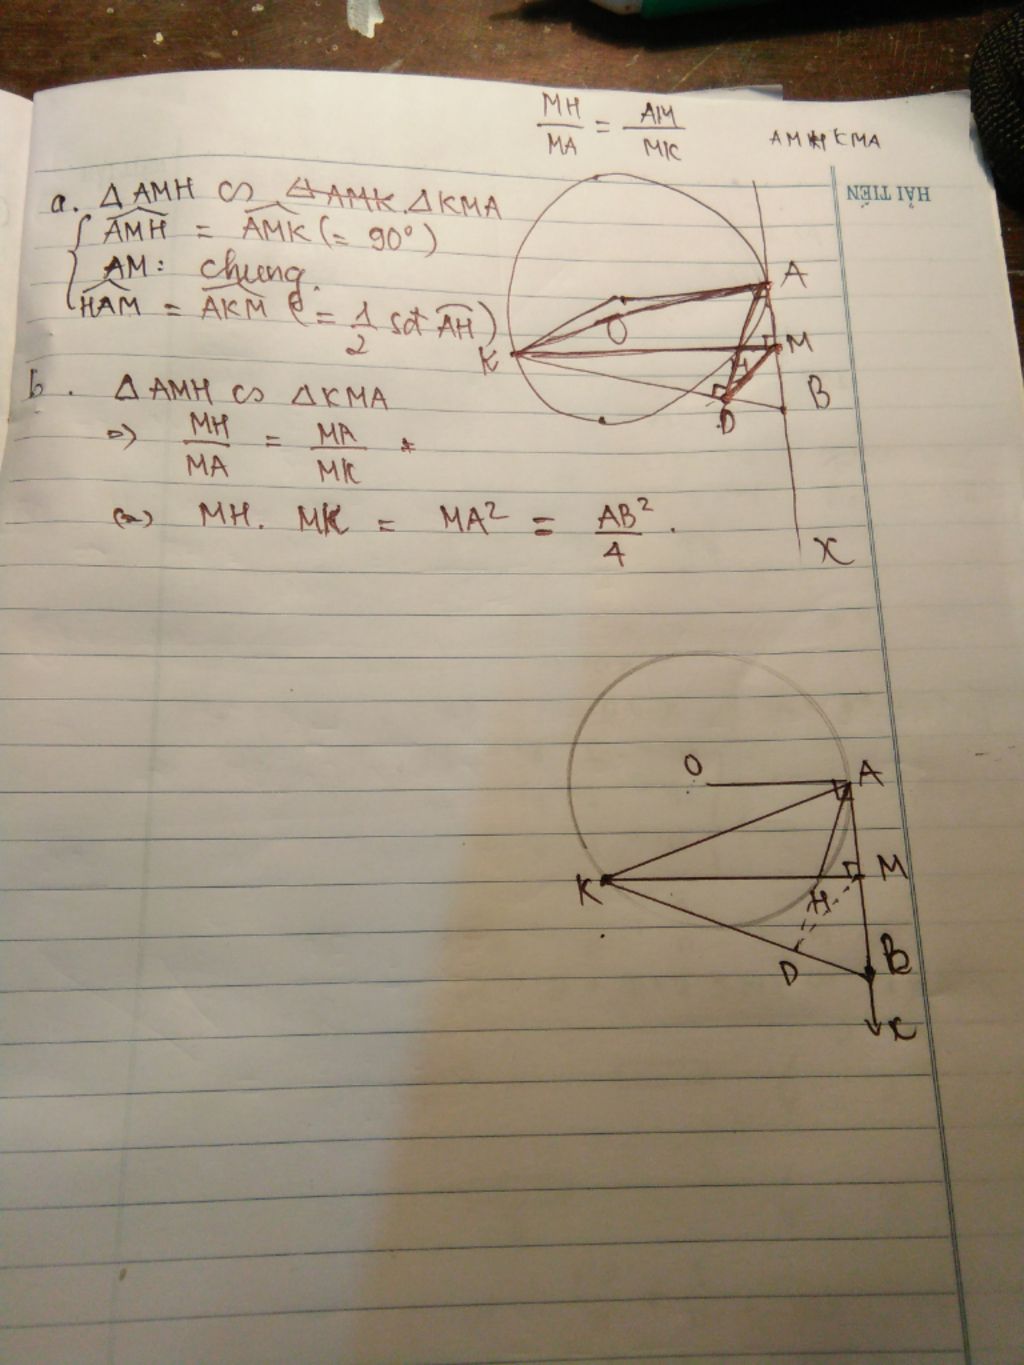 MH/MA = AM/MK
AMH KMA
HẢI TIẾN
a. Δ AMH ∽ Δ AMK. Δ KMA
AMH = AMK (= 90°)
AM: chung.
HAM = AKM (= 1/2 sđ AH)
b. Δ AMH ∽ Δ KMA
=> MH/MA = MA/MK
(=) MH. MK = MA² = AB²/4.
A
O
K
M
H
D
B
x
O
A
K
M
H
D
B
x